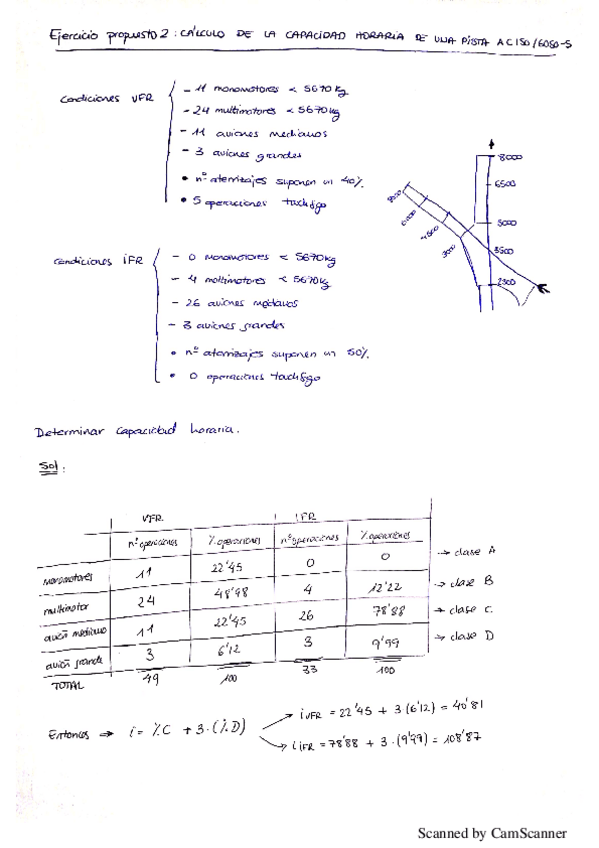 Ejercicio propuesto 2: CÁLCULO DE LA CAPACIDAD HORARIA DE UNA PISTA AC150/5060-5
Condiciones VFR
- 11 monomotores < 5670kg
- 24 multimotores < 5670kg
- 11 aviones medianos
- 3 aviones grandes
• nº aterrizajes suponen un 40%.
• 5 operaciones touch&go
8000
6500
5000
3500
2300
8000
6000
4500
3000
Condiciones IFR
- 0 monomotores < 5670kg
- 4 multimotores < 5670kg
- 26 aviones medianos
- 3 aviones grandes
• nº aterrizajes suponen un 50%.
• 0 operaciones touch&go
Determinar capacidad horaria.
Sol:
VFR IFR
nº operaciones % operaciones nº operaciones % operaciones
monomotores 11 22'45 0 0 → clase A
multimotor 24 48'98 4 12'22 → clase B
avión mediano 11 22'45 26 78'88 → clase C.
avión grande 3 6'12 3 9'99 → clase D
TOTAL 49 100 33 100
Entonces ⇒ i = %C + 3·(%D)
→ iVFR = 22'45 + 3·(6'12) = 40'81
→ iIFR = 78'88 + 3·(9'99) = 108'87
Scanned by CamScanner